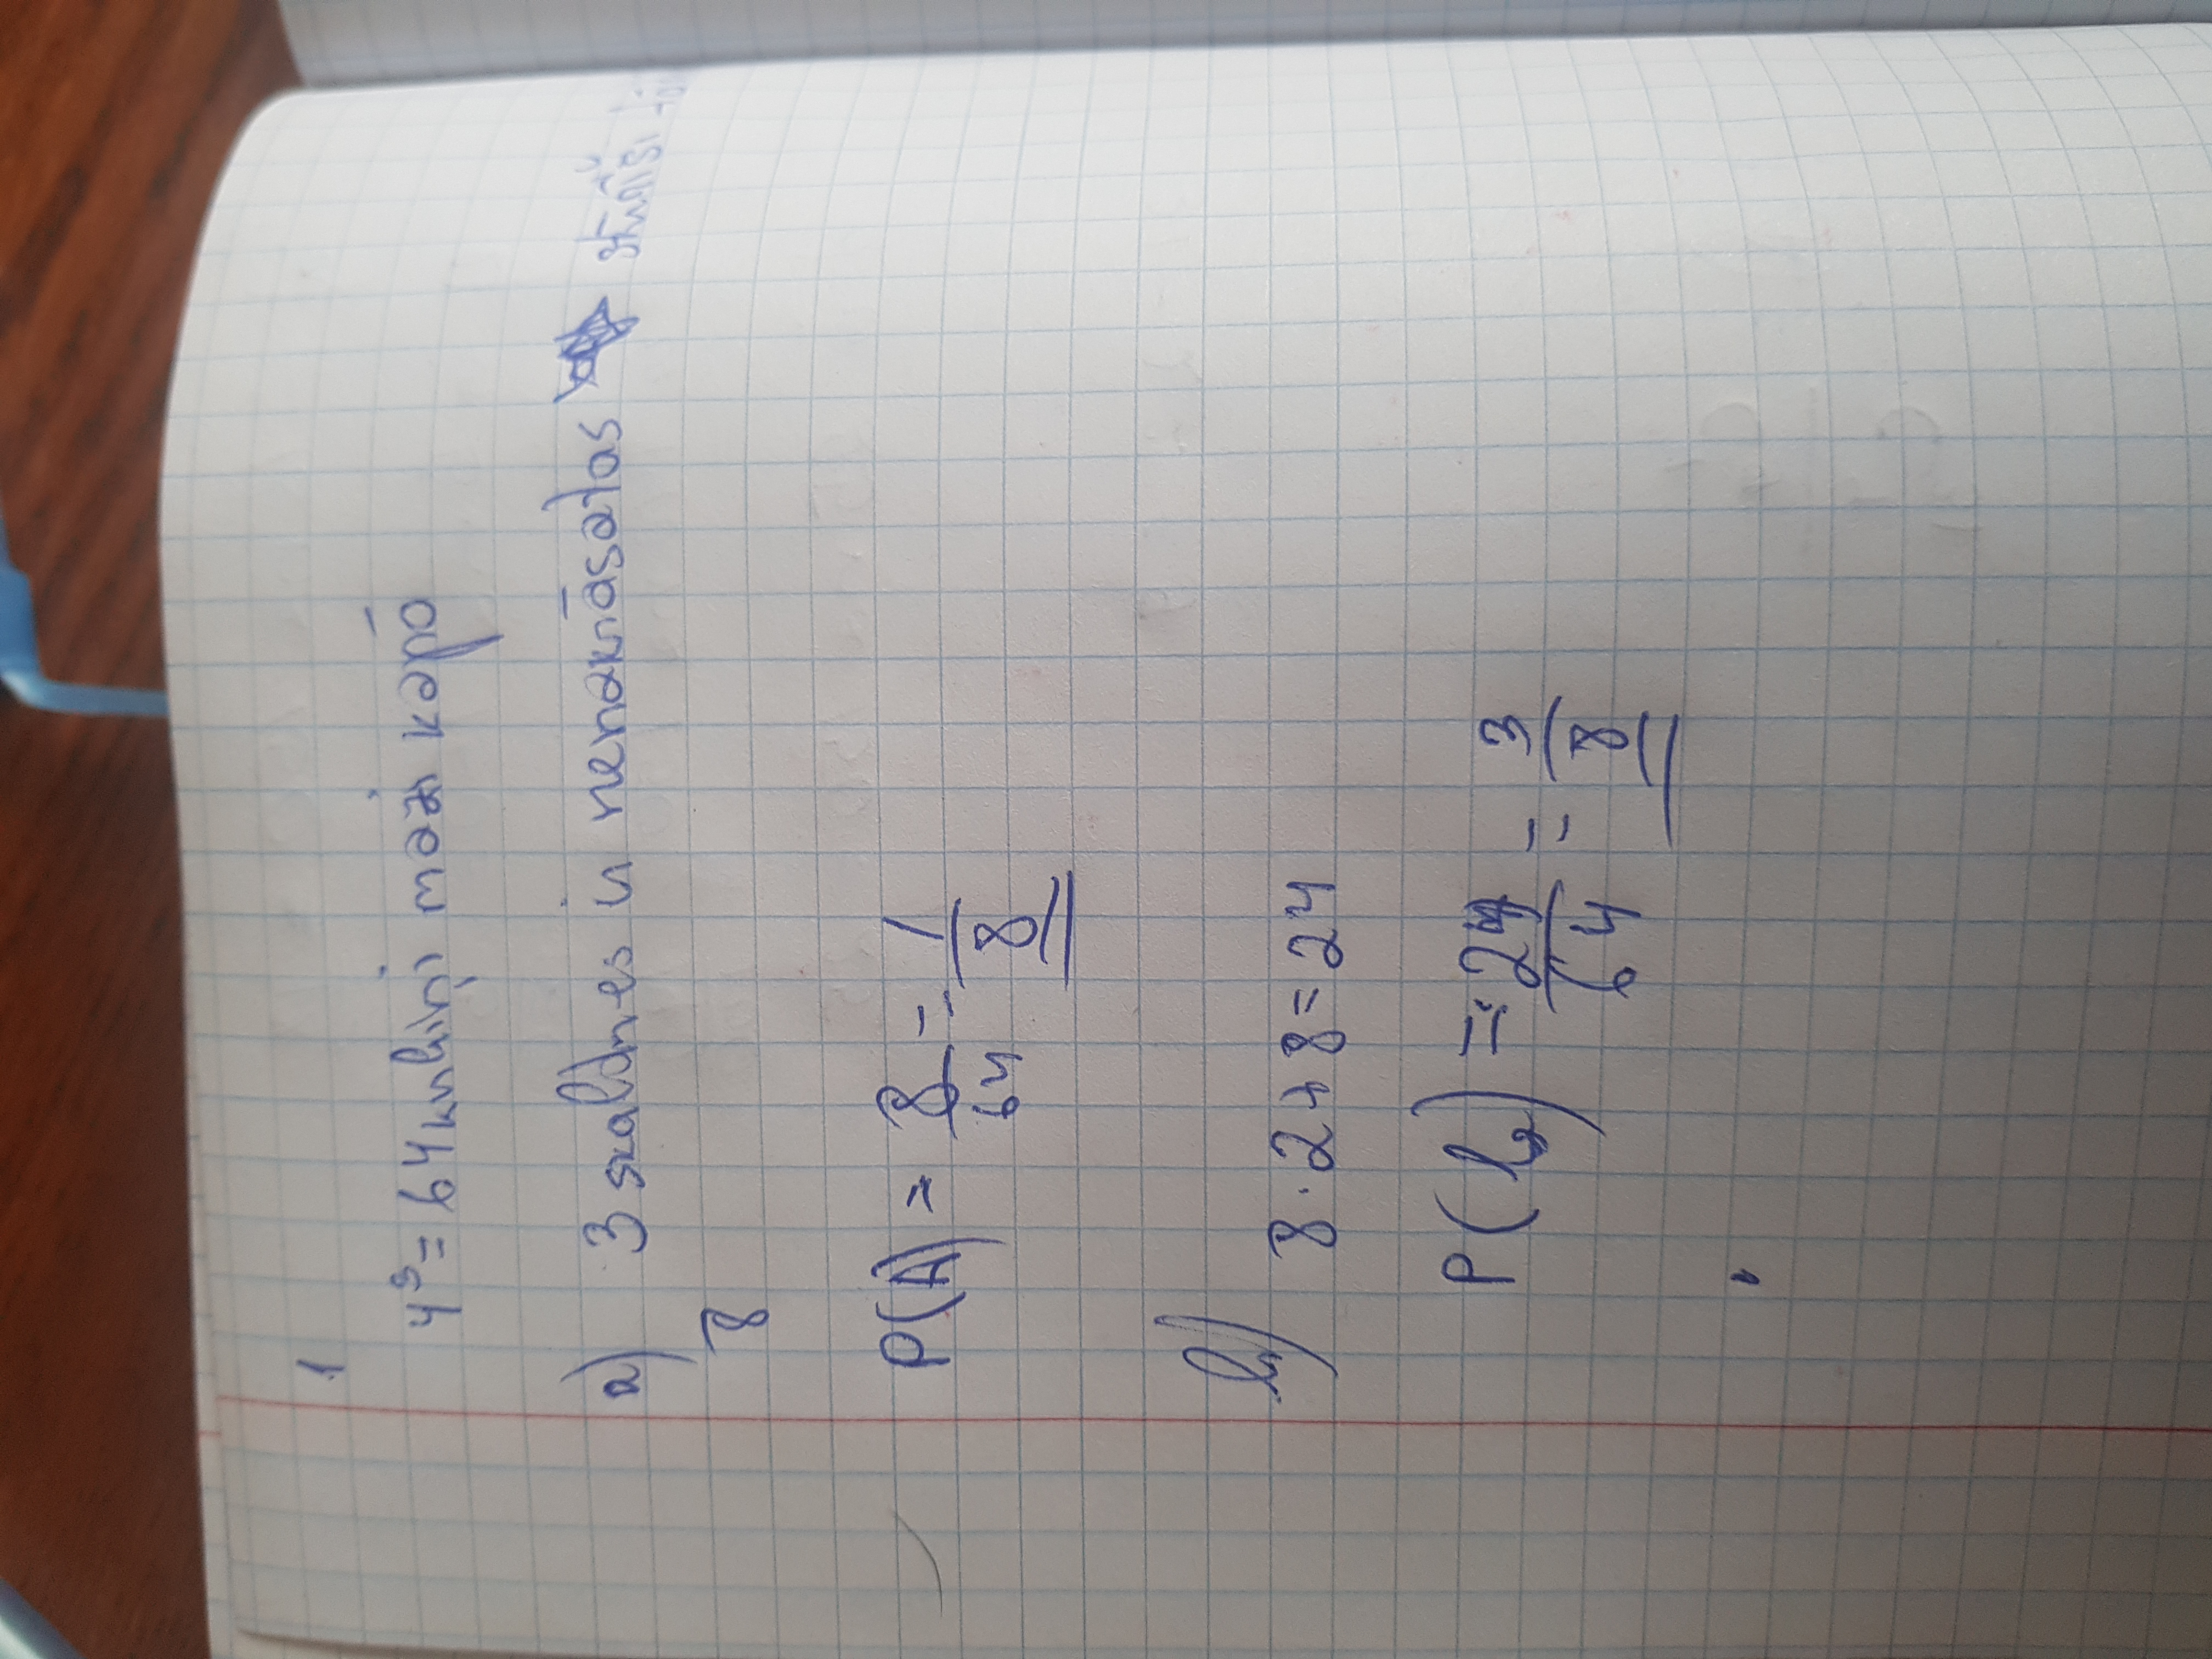 1
4³ = 64 kubiņi mazi kopā
a) 3 skaldnes ir nenokrāsotas stūrīši
8
P(A) = 8/64 = 1/8
b) 8 · 2 + 8 = 24
P(b) = 24/64 = 3/8